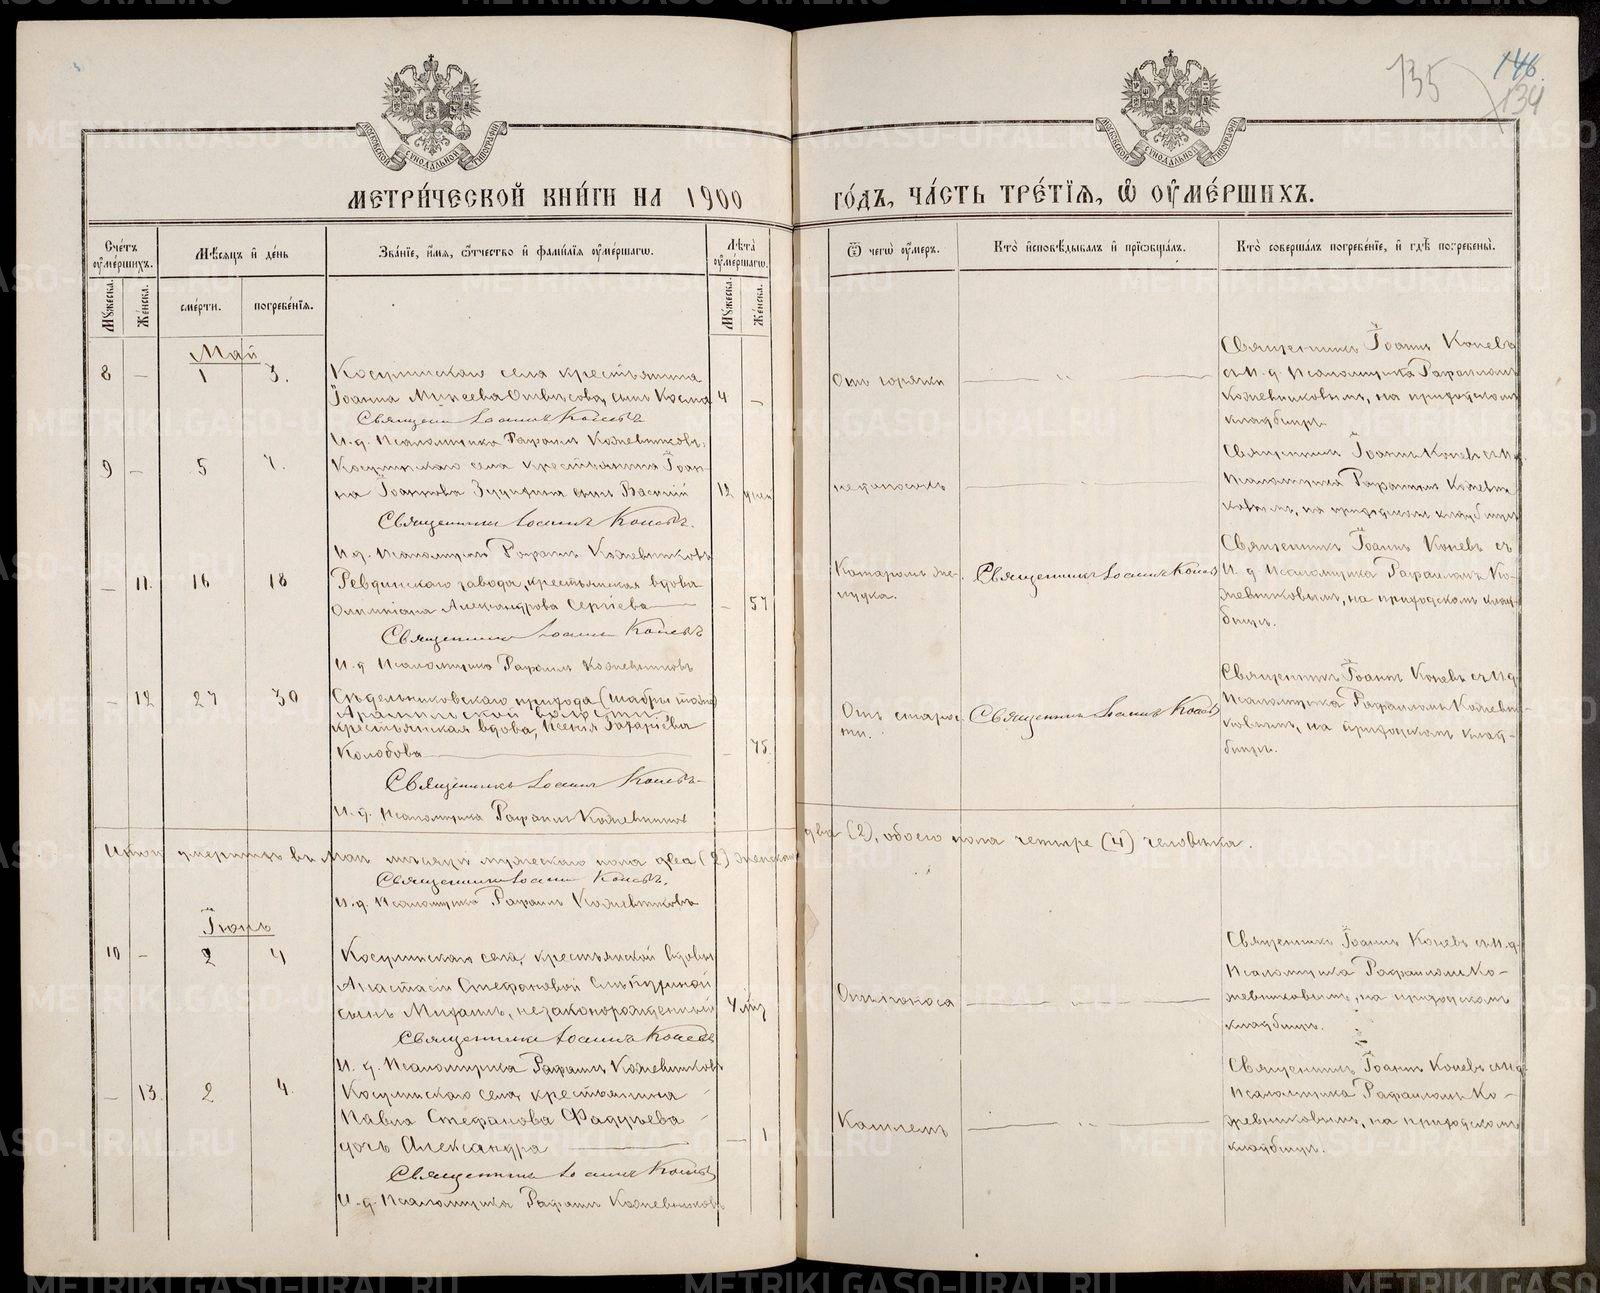 135
146.
134
МОСКОВСКОЙ СУНОДАЛЬНОЙ ТИПОГРАФІИ
МОСКОВСКОЙ СУНОДАЛЬНОЙ ТИПОГРАФІИ
МЕТРИ́ЧЕСКОЙ КНИ́ГИ НА 1900
ГО́ДЪ, ЧА́СТЬ ТРЕ́ТІѦ, Ѡ ОУМЕ́РШИХЪ.
Сче́тъ оуме́ршихъ.
Мѣсѧцъ и день
Зва́ніе, и́мѧ, о́тчество и фами́лїѧ оуме́ршагѡ.
Лѣта̀ оуме́ршагѡ.
Ѿ чегѡ̀ оу́меръ.
Кто̀ и҆сповѣ́дывалъ и прїѡбща́лъ.
Кто̀ соверша́лъ погребе́нїе, и гдѣ̀ погребены̀.
Му́жеска.
Же́нска.
сме́рти.
погребе́нїѧ.
Му́жеска.
Же́нска.
Май
8 — 1 3.
Косулинскаго села крестьянина
Іоанна Сына Косма 4 —
Священникъ Іоаннъ Коневъ
И. д. Псаломщика Рафаилъ Кожевниковъ.
Отъ горячки
Священникъ Іоаннъ Коневъ
съ И. д. Псаломщика Рафаиломъ
Кожевниковымъ, на приходскомъ
кладбищѣ.
9 — 5 7.
Косулинскаго села крестьянина Іоан-
на Іоаннова сынъ Василій 12
Священникъ Іоаннъ Коневъ.
И. д. Псаломщика Рафаилъ Кожевниковъ
Священникъ Іоаннъ Коневъ съ И. д.
Псаломщика Рафаиломъ Кожевни-
ковымъ, на приходскомъ кладбищѣ
— 11. 16 18
Ревдинскаго завода, крестьянская вдова
Олимпіада Александрова Сергѣева — 57
Священникъ Іоаннъ Коневъ
И. д. Псаломщика Рафаилъ Кожевниковъ
Катаромъ же-
лудка.
Священникъ Іоаннъ Коневъ
Священникъ Іоаннъ Коневъ съ
И. д. Псаломщика Рафаиломъ Ко-
жевниковымъ, на приходскомъ клад-
бищѣ.
— 12 27 30
Сѣдельниковскаго прихода
Арамильской волости
крестьянская вдова, Ксенія
Колобова — 75.
Священникъ Іоаннъ Коневъ
И. д. Псаломщика Рафаилъ Кожевниковъ
Отъ старос-
ти.
Священникъ Іоаннъ Коневъ
Священникъ Іоаннъ Коневъ съ И. д.
Псаломщика Рафаиломъ Кожевни-
ковымъ, на приходскомъ клад-
бищѣ.
Итого умершихъ въ Маѣ мѣсяцѣ мужескаго пола два (2) женскаго
два (2), обоего пола четыре (4) человѣка.
Священникъ Іоаннъ Коневъ.
И. д. Псаломщика Рафаилъ Кожевниковъ
Іюнь
10 — 2 4
Косулинскаго села, крестьянской вдовы
Анастасіи Стефановой
сынъ Михаилъ, незаконорожденный 4
Священникъ Іоаннъ Коневъ
И. д. Псаломщика Рафаилъ Кожевниковъ
Отъ поноса
Священникъ Іоаннъ Коневъ съ И. д.
Псаломщика Рафаиломъ Ко-
жевниковымъ, на приходскомъ
кладбищѣ.
— 13. 2 4.
Косулинскаго села, крестьянина
Павла Стефанова Фадѣева
дочь Александра — 1
Священникъ Іоаннъ Коневъ
И. д. Псаломщика Рафаилъ Кожевниковъ
Кашлемъ
Священникъ Іоаннъ Коневъ съ И. д.
Псаломщика Рафаиломъ Ко-
жевниковымъ, на приходскомъ
кладбищѣ.
METRIKI.GASO-URAL.RU